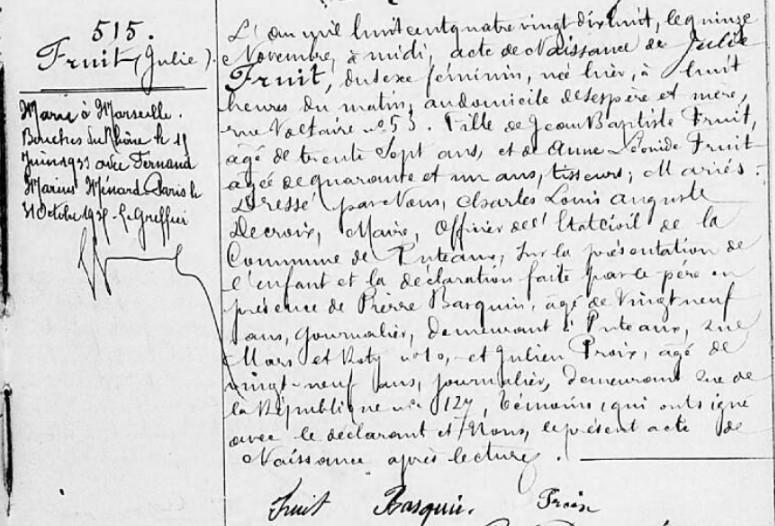 515.
Fruit (Julie).
Marié à Marseille.
Bouches du Rhône le 15
Juin 1933 avec Fernand
Marius Ménard Paris le
31 Octobre 19 - Le Greffier
L'an mil huit cent quatre vingt dix huit, le quinze
Novembre, à midi, acte de Naissance de Julie
Fruit, du sexe féminin, née hier, à huit
heures du matin, au domicile de ses père et mère,
rue Voltaire no 53. Fille de Jean Baptiste Fruit,
âgé de trente sept ans, et de Anne Léonide Fruit
âgée de quarante et un ans, tisseurs; Mariés.
Dressé par Nous, Charles Louis Auguste
Decroix, Maire, Officier de l'Etat civil de la
Commune de Puteaux, sur la présentation de
l'enfant et la déclaration faite par le père en
présence de Pierre Basquin, âgé de vingt neuf
ans, journalier, demeurant à Puteaux, rue
Mars et Roty no 10, et Julien Proix, âgé de
vingt-neuf ans, journalier, demeurant rue de
la République no 127, témoins, qui ont signé
avec le déclarant et Nous, le présent acte de
Naissance après lecture.
Fruit Basquin. Proix